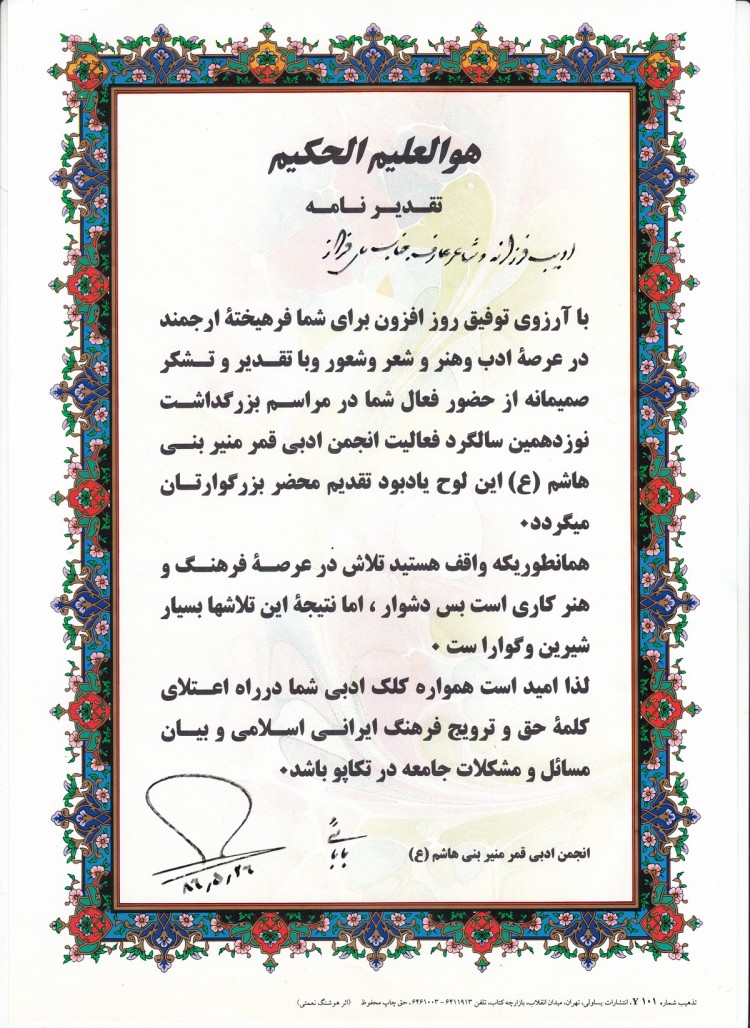 هوالعلیم الحکیم
تقدیر نامه
ادیب فرزانه و شاعر عارف جناب
با آرزوی توفیق روز افزون برای شما فرهیختهٔ ارجمند
در عرصهٔ ادب وهنر و شعر وشعور وبا تقدیر و تشکر
صمیمانه از حضور فعال شما در مراسم بزرگداشت
نوزدهمین سالگرد فعالیت انجمن ادبی قمر منیر بنی
هاشم (ع) این لوح یادبود تقدیم محضر بزرگوارتان
میگردد۰
همانطوریکه واقف هستید تلاش در عرصهٔ فرهنگ و
هنر کاری است بس دشوار ، اما نتیجهٔ این تلاشها بسیار
شیرین وگوارا ست ۰
لذا امید است همواره کلک ادبی شما درراه اعتلای
کلمهٔ حق و ترویج فرهنگ ایرانی اسلامی و بیان
مسائل و مشکلات جامعه در تکاپو باشد۰
انجمن ادبی قمر منیر بنی هاشم (ع)
بابائی
تذهیب شماره ۱۰۱ ۷، انتشارات یساولی، تهران، میدان انقلاب، بازارچه کتاب، تلفن ۶۴۱۱۹۱۳ - ۶۴۶۱۰۰۳، حق چاپ محفوظ (اثر هوشنگ نعمتی)